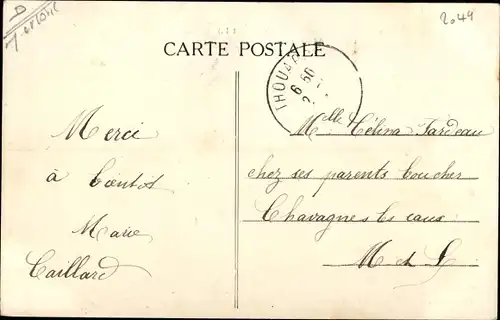 2049
CARTE POSTALE
THOUAR
6 50
Merci
à bientot
Marie
Caillard
Melle Célina Tardeau
chez ses parents boucher
Chavagnes les eaux
M et L